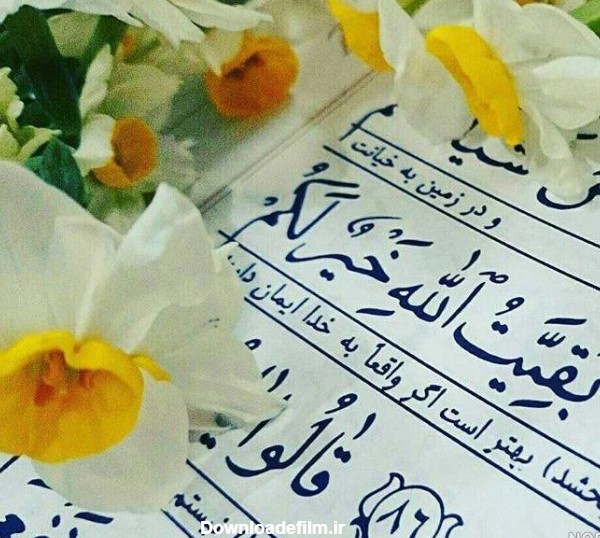 و در زمین به خیانت
بَقِيَّتُ اللَّهِ خَيْرٌ لَكُمْ
بخشد) بهتر است اگر واقعاً به خدا ایمان
قَالُوا
٨٦
نیستم
Downloadefilm.ir